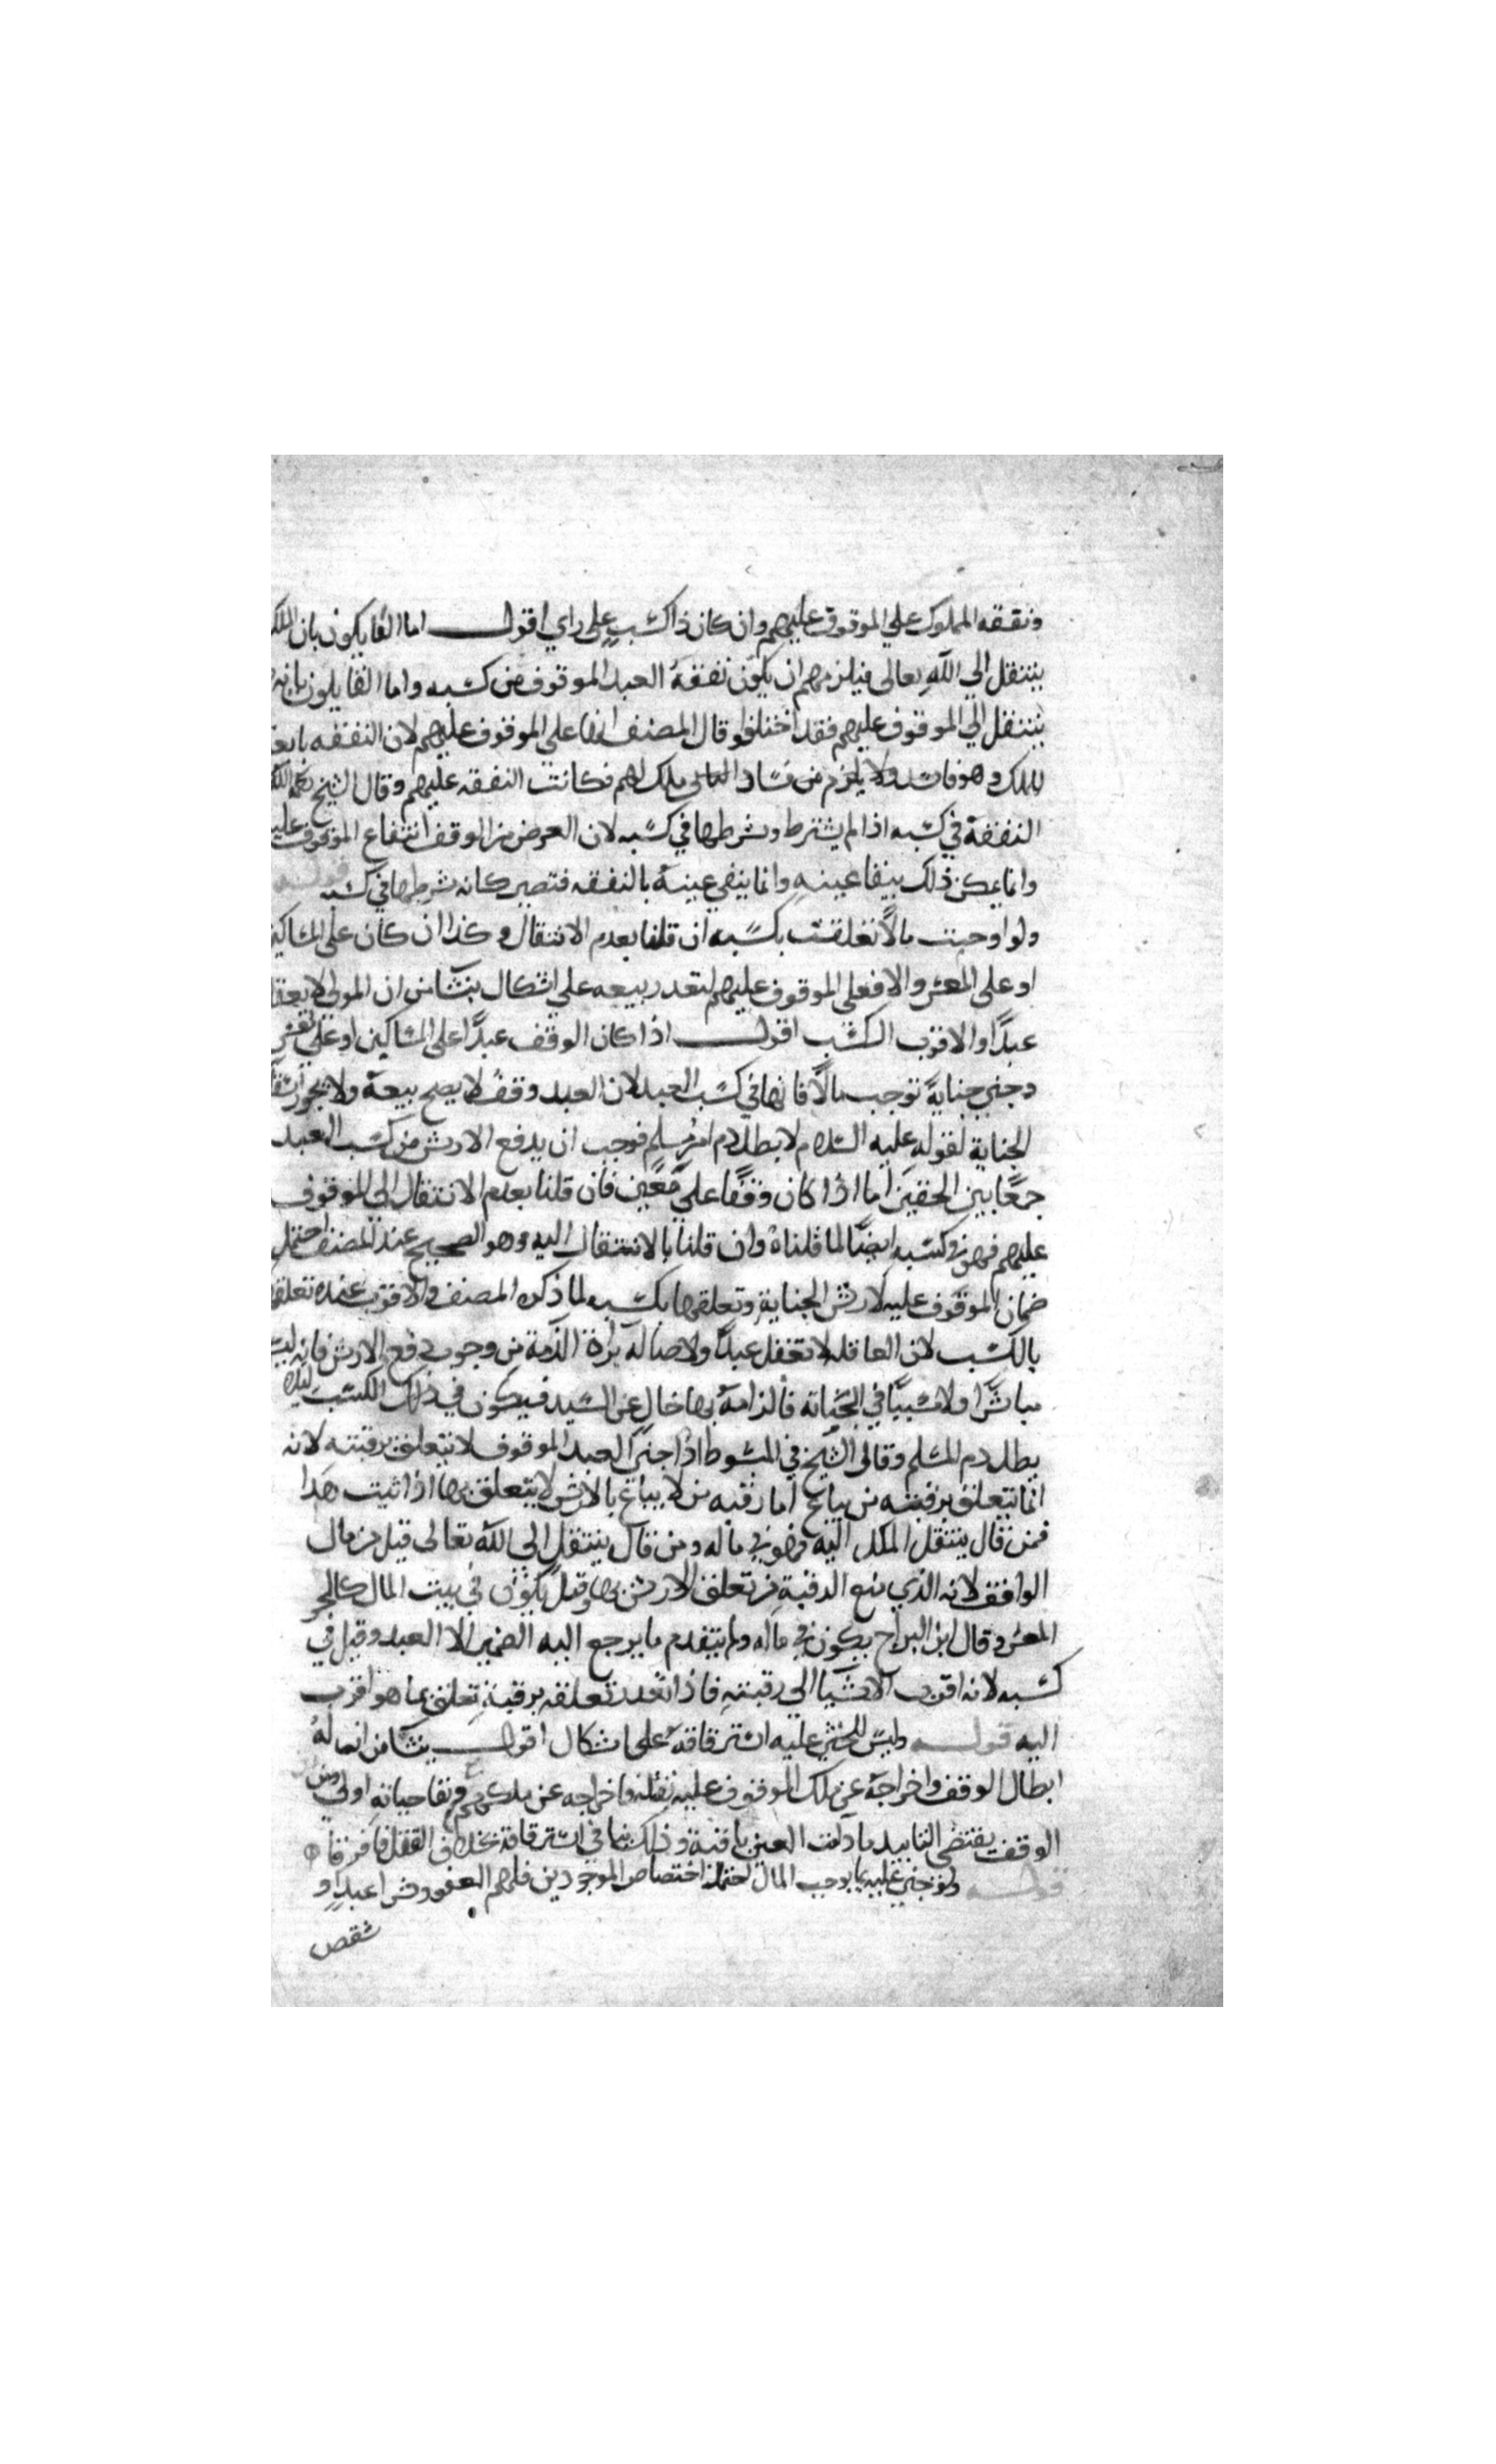 ونفقه المملوك علي الموقوف عليهم وان كان ذا كسب علي راي اقول اما القايلون بان الملك
ينتقل الي الله تعالى فيلزمهم ان يكون نفقة العبد الموقوف من كسبه واما القايلون بانه
ينتقل الي الموقوف عليهم فقد اختلفوا قال المصنف انها علي الموقوف عليهم لان النفقه تابعه
للملك وهو فاسد ولا يلزم من فساد ملك لهم فكانت النفقه عليهم وقال الشيخ
النفقة في كسبه اذا لم يشترط وشرطها في كسبه لان الغرض من الوقف انتفاع الموقوف عليه
وانما يمكن ذلك ببقا عينه وانما يبقى عينه بالنفقه فتصير كانه شرطها في كسبه قوله
ولو اوجبت مالا تعلقت بكسبه ان قلنا بعدم الانتقال وكذا ان كان على المساكين
او على المعسر والا فعلى الموقوف عليهم لتعذر بيعه علي اشكال ينشا من ان المولى لا يعقل
عبدا والاقرب الكسب اقول اذا كان الوقف عبدا على المساكين او على معسر
وجني جناية توجب مالا فانها في كسب العبد لان العبد وقف لا يصح بيعه ولا يجوز
الجناية لقوله عليه السلام لا يطل دم امرء مسلم فوجب ان يدفع الارش من كسب العبد
جمعا بين الحقين اما اذا كان وقفا علي معين فان قلنا بعدم الانتقال الى الموقوف
عليهم فهو في كسبه ايضا لما قلناه وان قلنا بالانتقال اليه وهو الصحيح عند المصنف احتمل
ضمان الموقوف عليه لارش الجناية وتعلقها بكسبه لما ذكره المصنف والاقرب عنده تعلقها
بالكسب لان العاقله لا تعقل عبدا ولاصاله براة الذمة من وجوب دفع الارش فانه ليس
مباشرا ولا مسببا في الجناية فالزامه بها خال عن السيد فيكون في ذلك الكسب ليلا
يطل دم المسلم وقال الشيخ في المبسوط اذا جنى العبد الموقوف لا يتعلق برقبته لانه
انما يتعلق برقبته من يباع اما رقبه من لا يباع بالارش لا يتعلق بها اذا ثبت هذا
فمن قال ينتقل الملك اليه فهو في ماله ومن قال ينتقل الى الله تعالى قيل من مال
الواقف لانه الذي منع الرقبة من تعلق الارش بها وقيل يكون في بيت المال كالحر
المعسر وقال ابن البراج يكون في ماله ولم يتقدم ما يرجع اليه الضمير الا العبد وقيل في
كسبه لانه اقرب الاشيا الى رقبته فاذا تعذر تعلقه برقبته تعلق بما هو اقرب
اليه قوله وليس للمجني عليه استرقاقه على اشكال اقول ينشا من انه له
ابطال الوقف واخراجه عن ملك الموقوف عليه بقتله فاخراجه عن ملكهم وبقا حياته اولي ومن
الوقف يقتضى التابيد ما دامت العين باقية وذلك ينافي استرقاقه بخلاف القتل فافترقا
قوله ولو جني عليه بما يوجب المال احتمل اختصاص الموجودين فلهم العفو وشرا عبد او
شقص